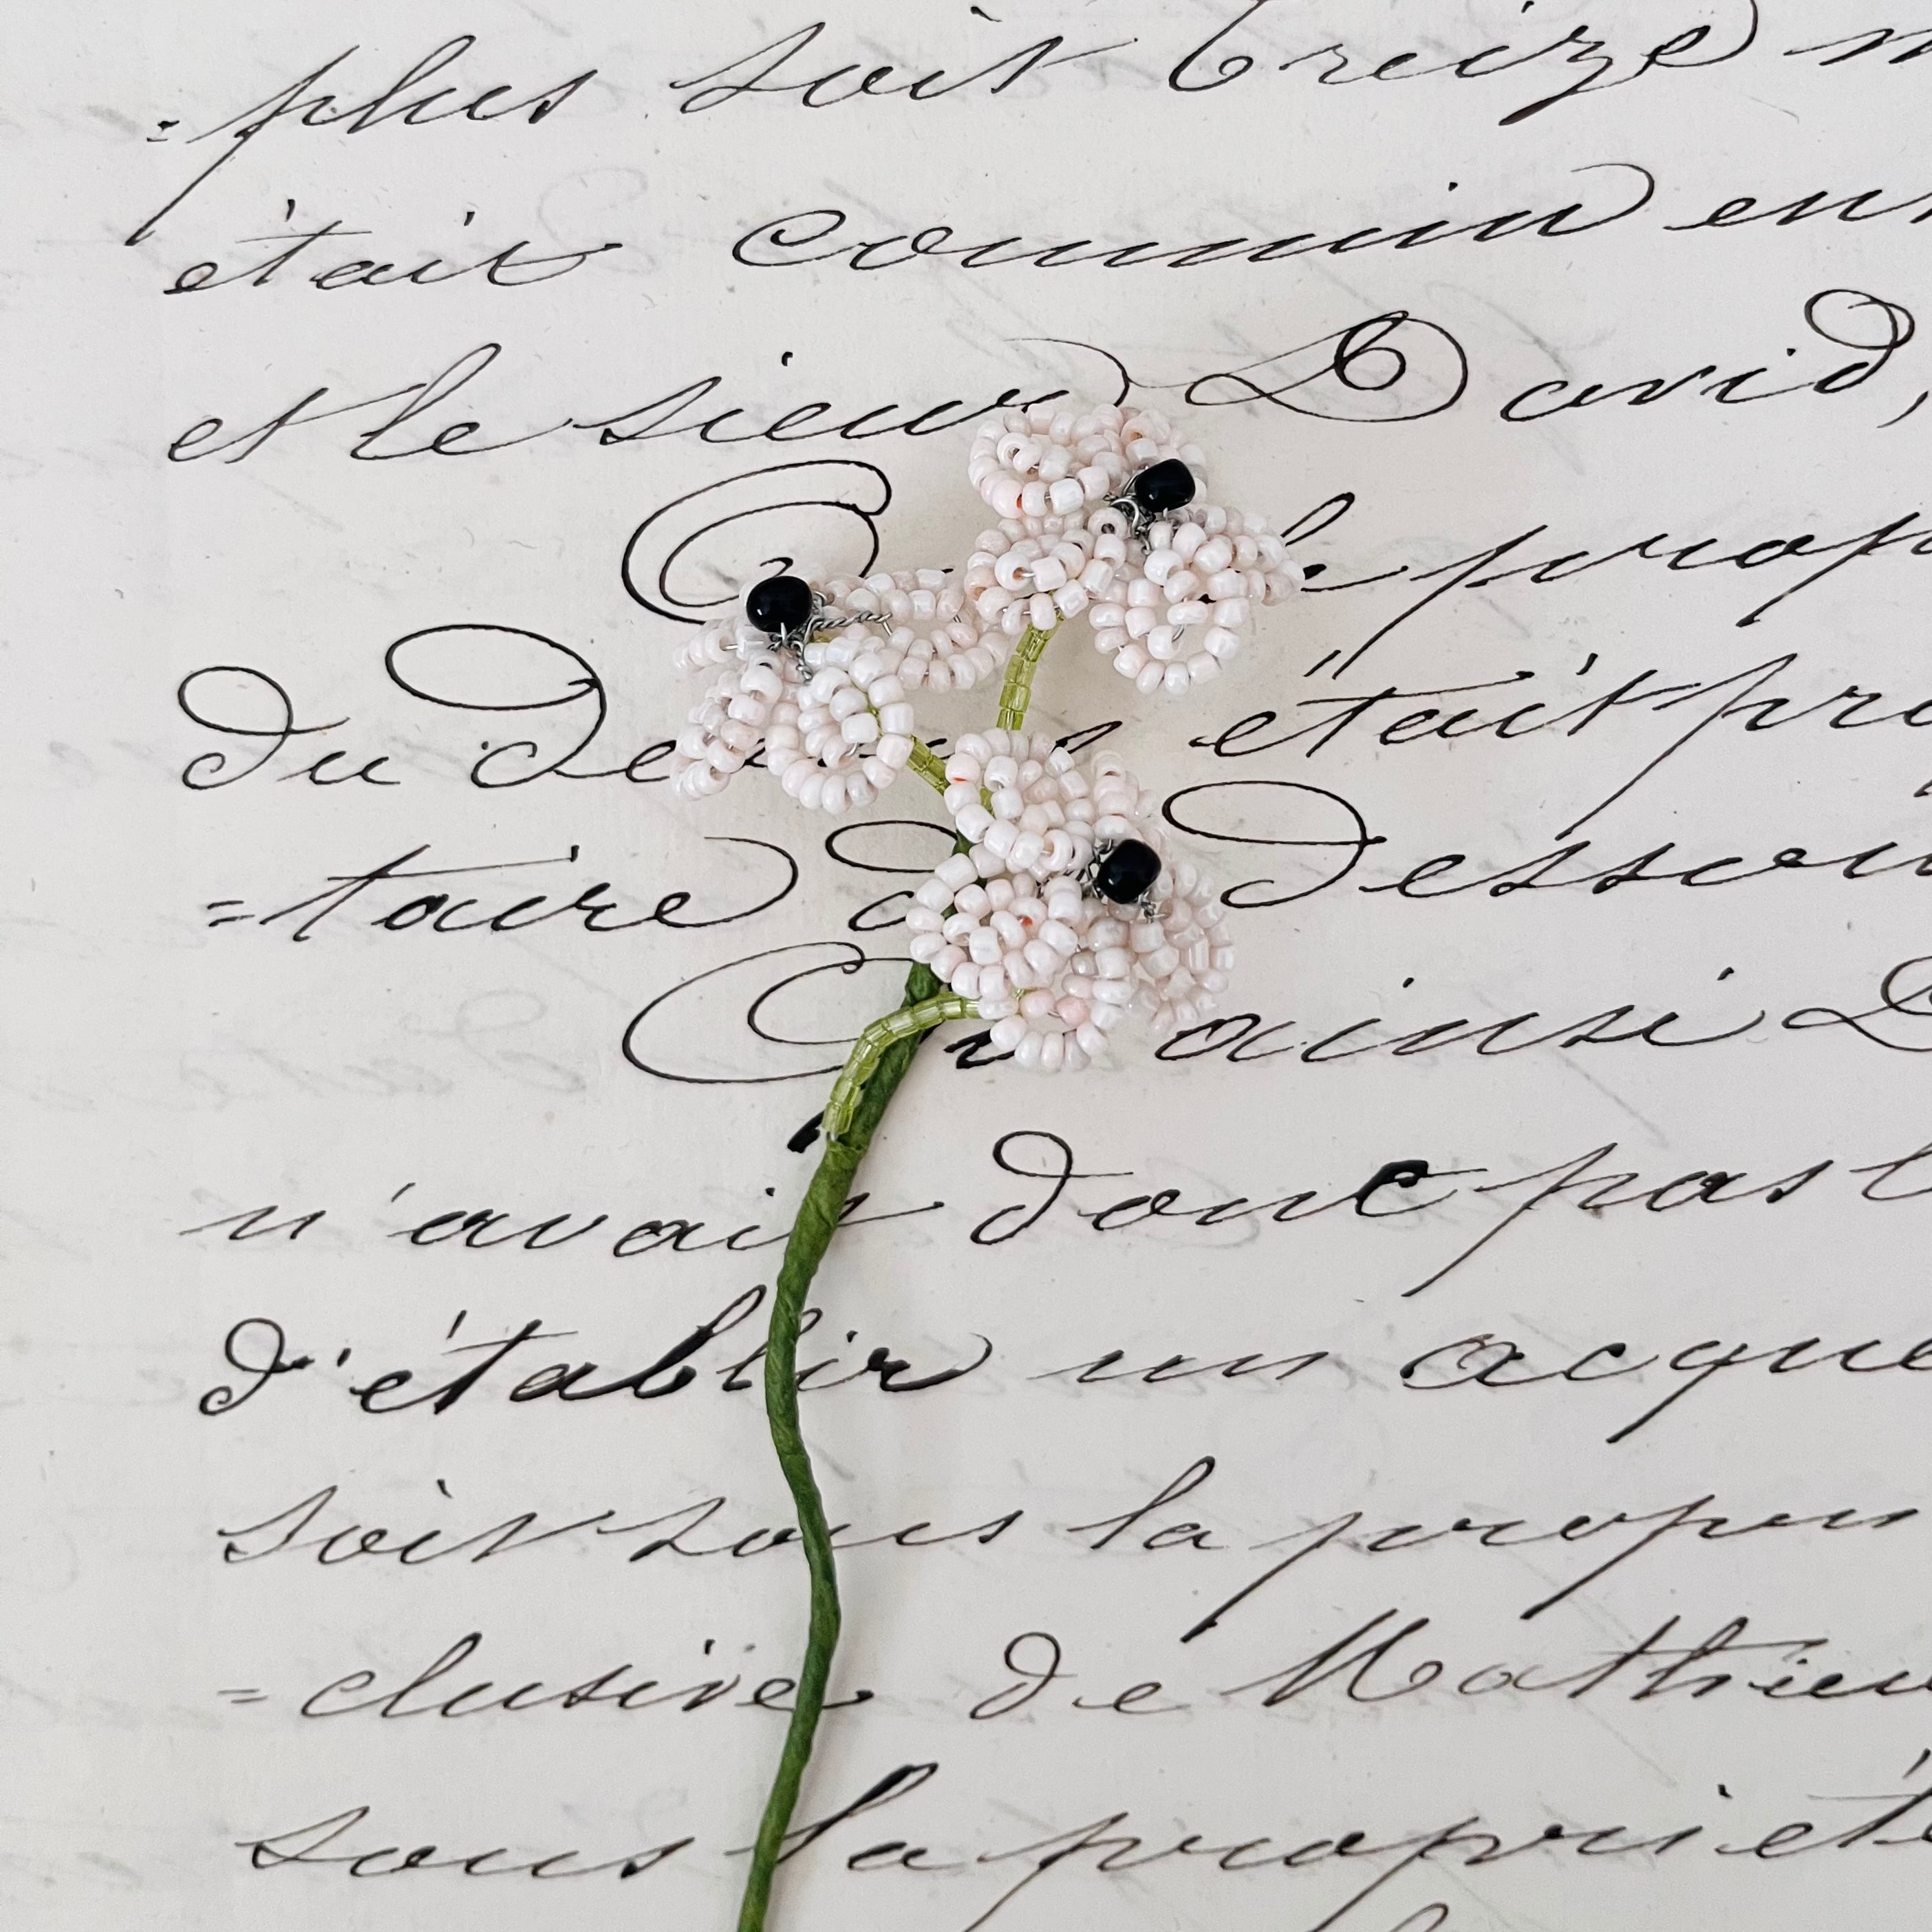 =plus soit treize
était commun
et le sieur David,
le
du était
=taire dessous
ainsi
n'avait donc pas
d'établir un
soit sous la
=clusive de Mathieu
sous la propriété